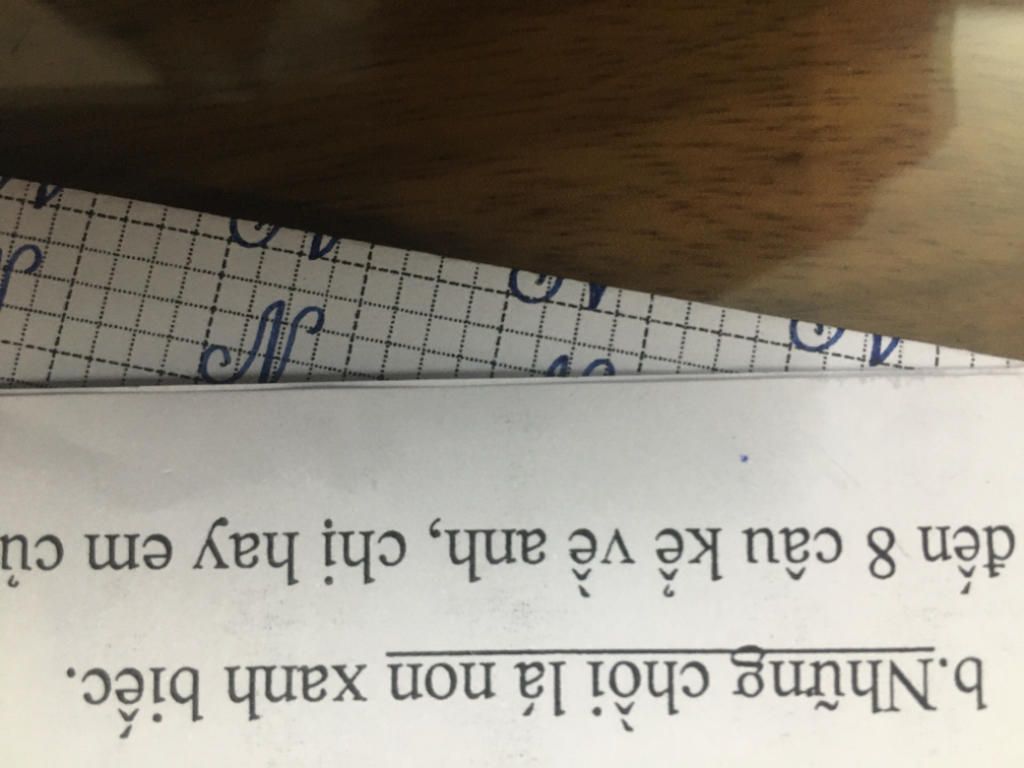 b.Những chồi lá non xanh biếc.
đến 8 câu kể về anh, chị hay em củ
N